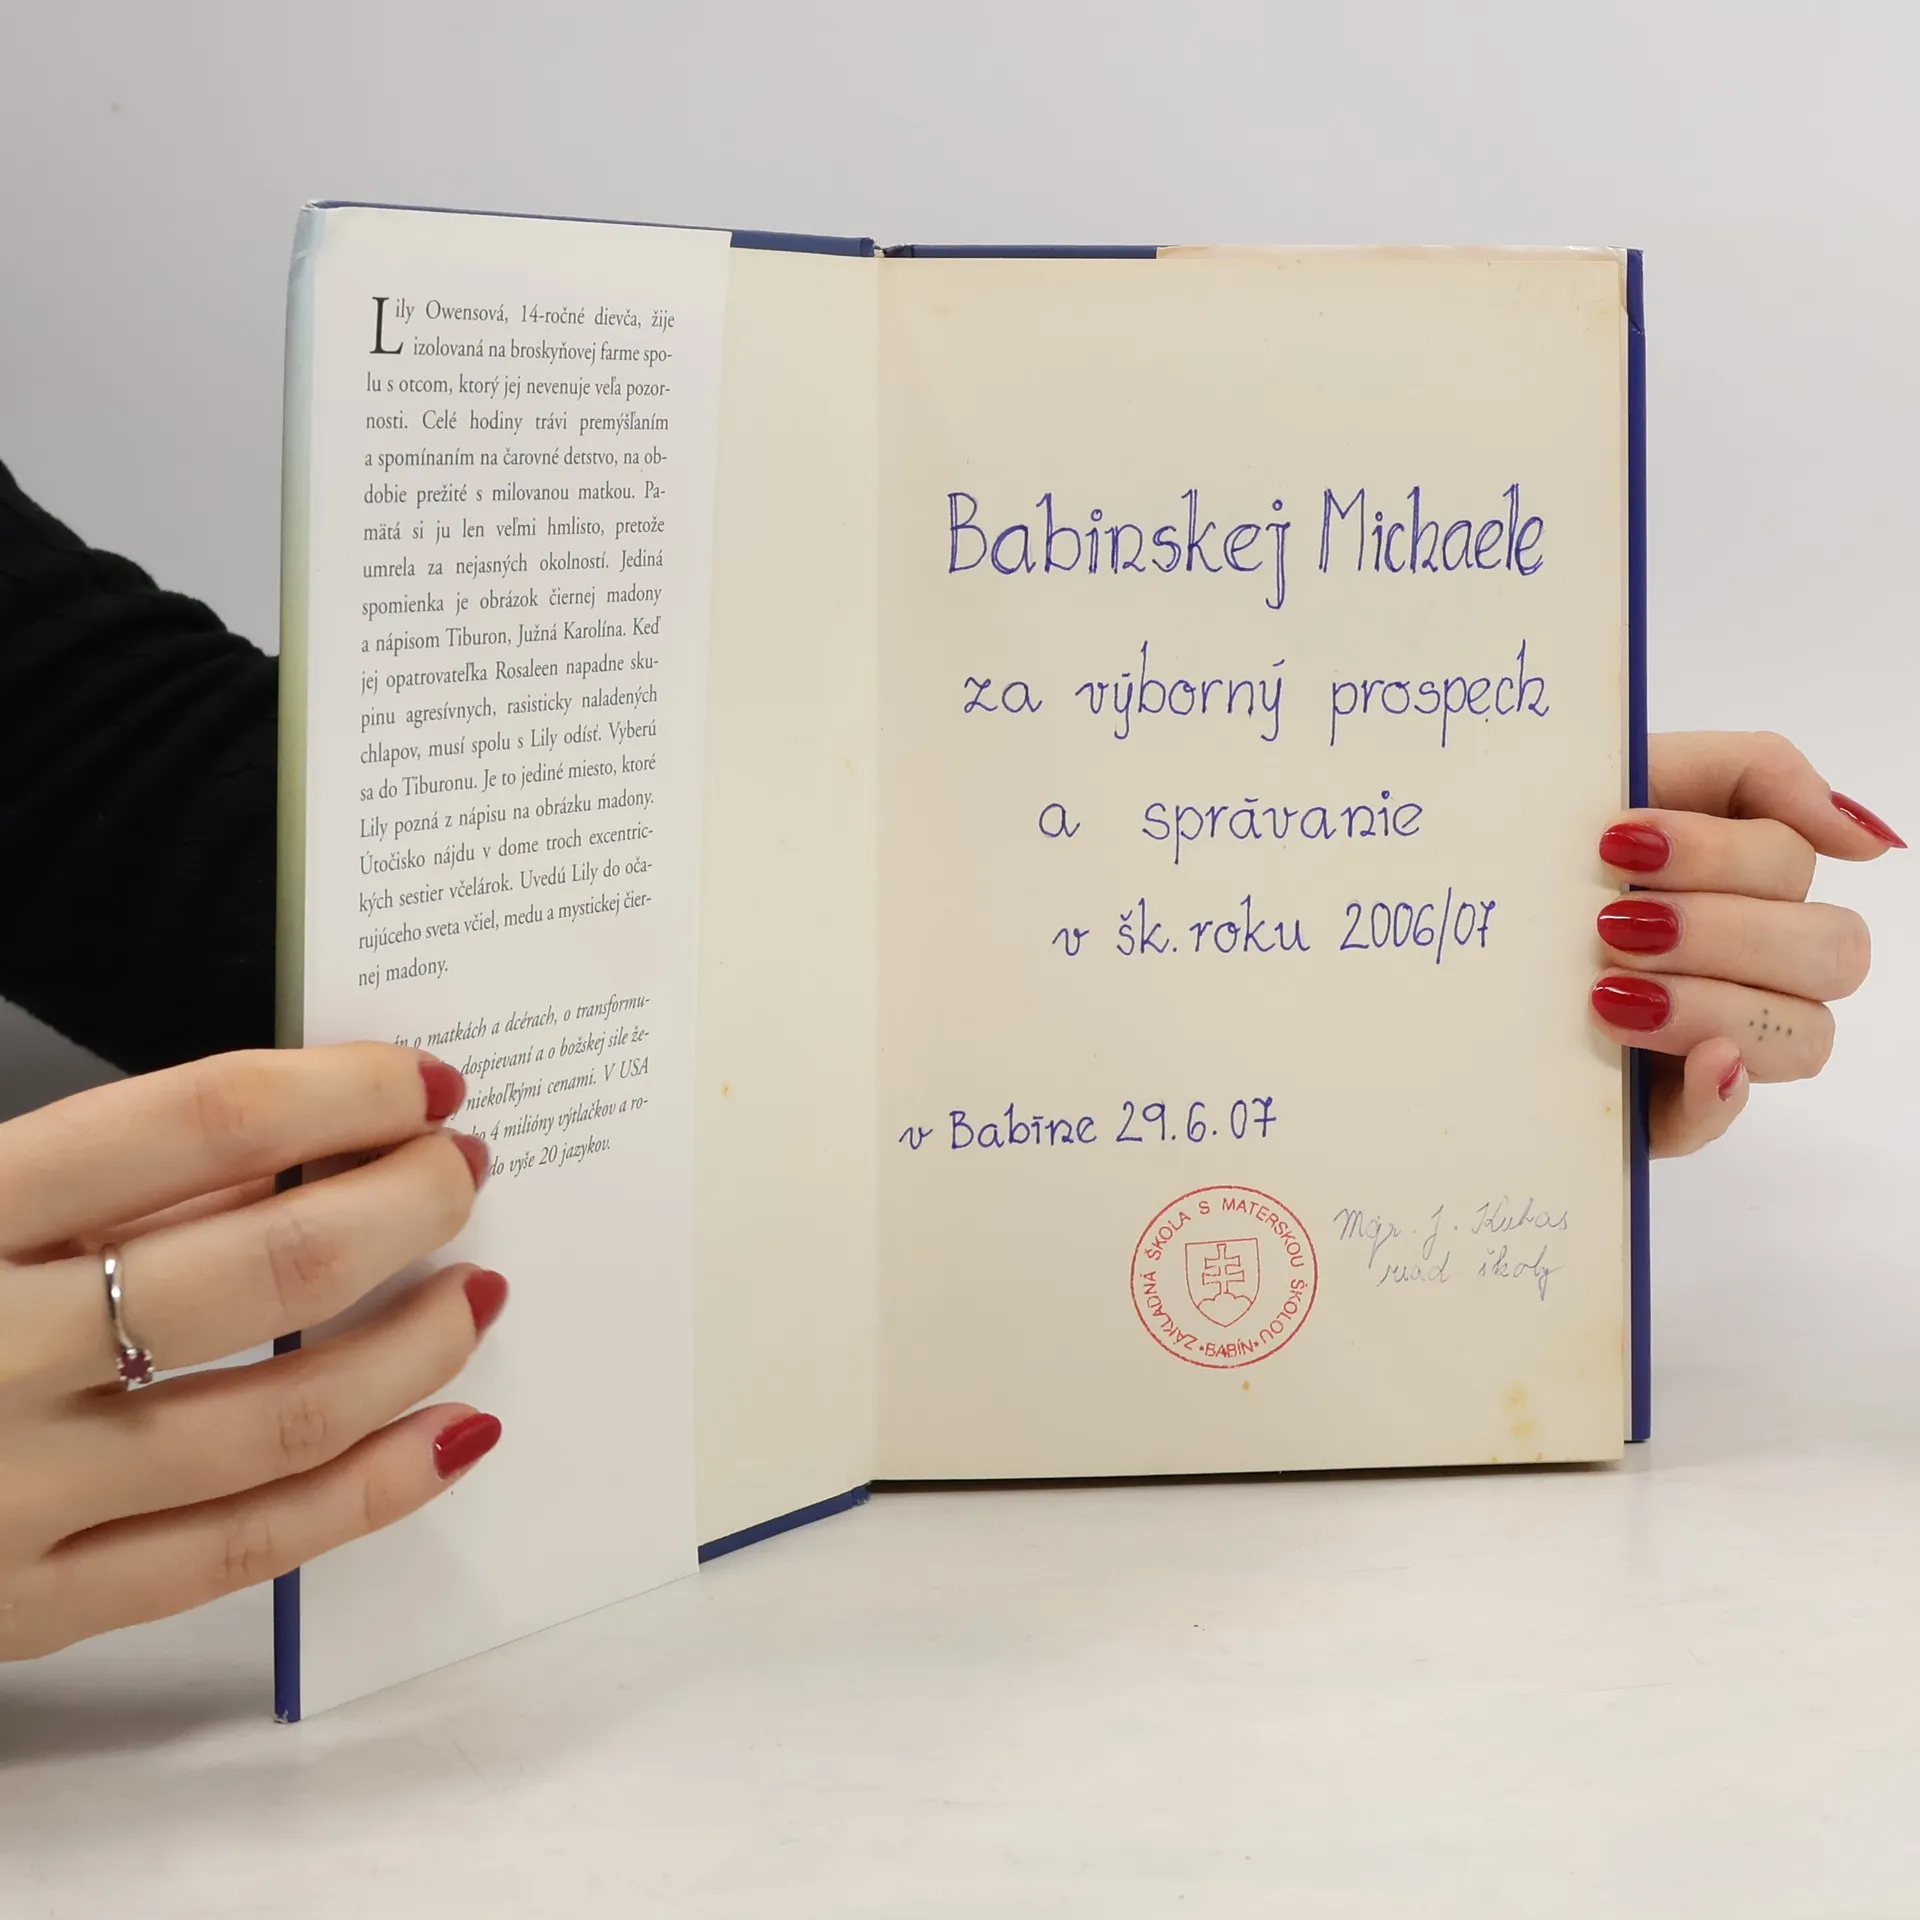 Lily Owensová, 14-ročné dievča, žije
izolovaná na broskyňovej farme spo-
lu s otcom, ktorý jej nevenuje veľa pozor-
nosti. Celé hodiny trávi premýšľaním
a spomínaním na čarovné detstvo, na ob-
dobie prežité s milovanou matkou. Pa-
mätá si ju len veľmi hmlisto, pretože
umrela za nejasných okolností. Jediná
spomienka je obrázok čiernej madony
a nápisom Tiburon, Južná Karolína. Keď
jej opatrovateľka Rosaleen napadne sku-
pinu agresívnych, rasisticky naladených
chlapov, musí spolu s Lily odísť. Vyberú
sa do Tiburonu. Je to jediné miesto, ktoré
Lily pozná z nápisu na obrázku madony.
Útočisko nájdu v dome troch excentric-
kých sestier včelárok. Uvedú Lily do oča-
rujúceho sveta včiel, medu a mystickej čier-
nej madony.
o matkách a dcérach, o transformu-
dospievaní a o božskej sile že-
niekoľkými cenami. V USA
4 milióny výtlačkov a ro-
do vyše 20 jazykov.
Babinskej Michaele
za výborný prospech
a správanie
v šk. roku 2006/07
v Babíne 29.6.07
ZÁKLADNÁ ŠKOLA S MATERSKOU ŠKOLOU
BABÍN
Mgr. J. Kubas
riad školy